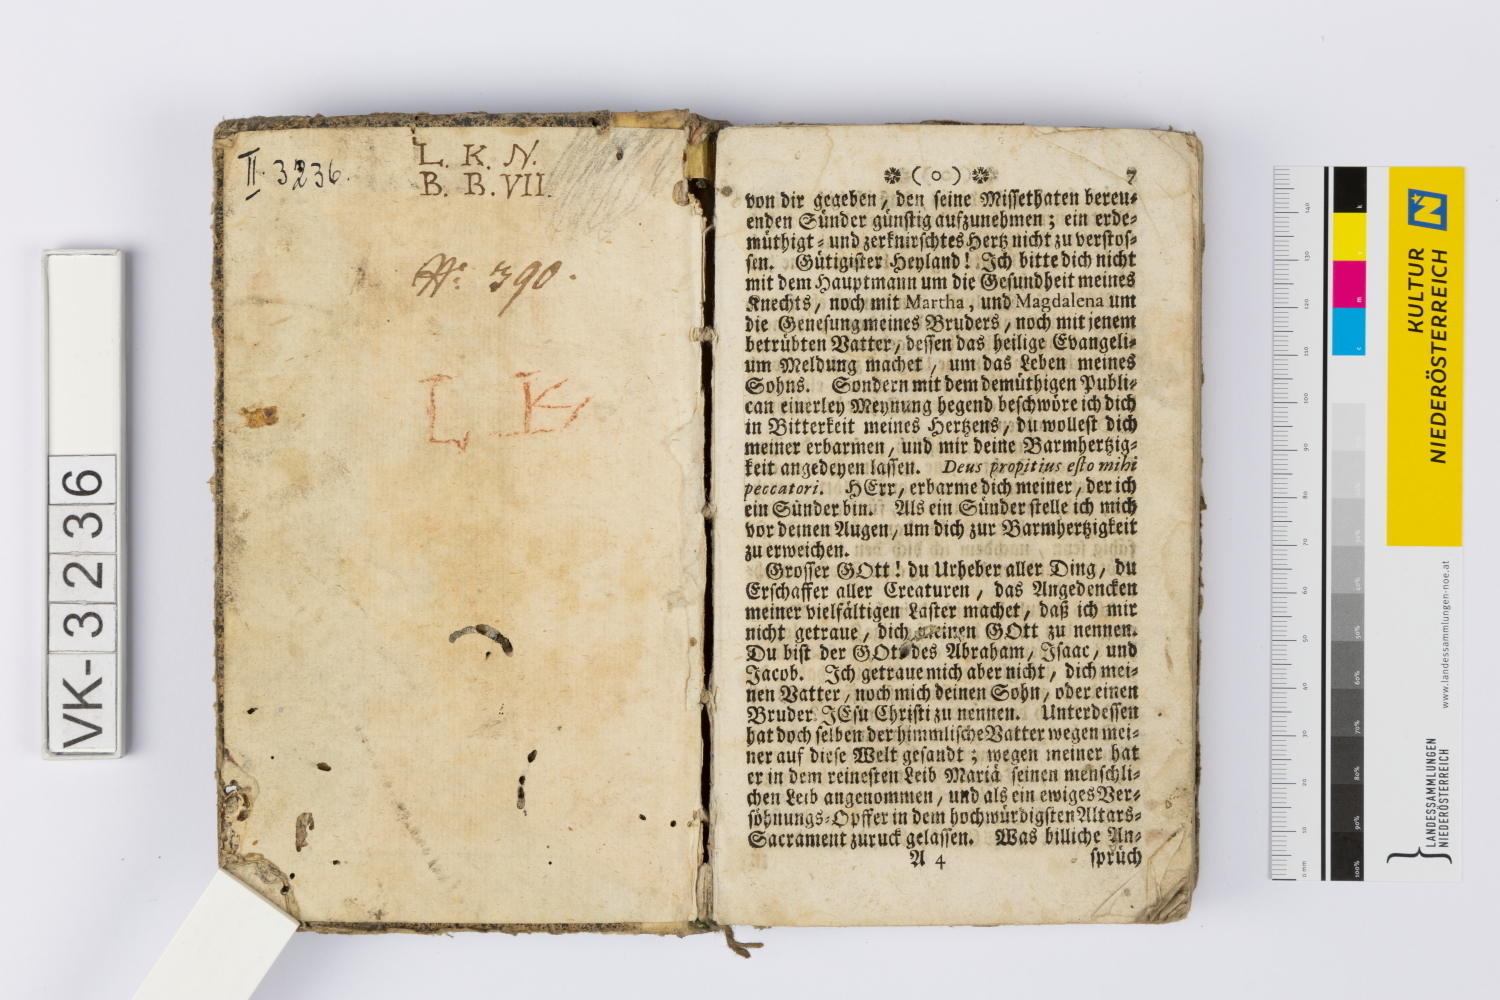 VK-3236
II 3236.
L. K. N.
B. B. VII.
No: 390.
L K
(o) 7
von dir gegeben, den seine Missethaten bereu-
enden Sünder günstig aufzunehmen; ein erde-
müthigt- und zerknirschtes Hertz nicht zu verstos-
sen. Gütigister Heyland! Ich bitte dich nicht
mit dem Hauptmann um die Gesundheit meines
Knechts, noch mit Martha, und Magdalena um
die Genesung meines Bruders, noch mit jenem
betrübten Vatter, dessen das heilige Evangeli-
um Meldung machet, um das Leben meines
Sohns. Sondern mit dem demüthigen Publi-
can einerley Meynung hegend beschwöre ich dich
in Bitterkeit meines Hertzens, du wollest dich
meiner erbarmen, und mir deine Barmhertzig-
keit angedeyen lassen. Deus propitius esto mihi
peccatori. HErr, erbarme dich meiner, der ich
ein Sünder bin. Als ein Sünder stelle ich mich
vor deinen Augen, um dich zur Barmhertzigkeit
zu erweichen.
Grosser GOtt! du Urheber aller Ding, du
Erschaffer aller Creaturen, das Angedencken
meiner vielfältigen Laster machet, daß ich mir
nicht getraue, dich meinen GOtt zu nennen.
Du bist der GOtt des Abraham, Isaac, und
Jacob. Ich getraue mich aber nicht, dich mei-
nen Vatter, noch mich deinen Sohn, oder einen
Bruder JEsu Christi zu nennen. Unterdessen
hat doch selben der himmlische Vatter wegen mei-
ner auf diese Welt gesandt; wegen meiner hat
er in dem reinesten Leib Mariä seinen menschli-
chen Leib angenommen, und als ein ewiges Ver-
söhnungs-Opffer in dem hochwürdigsten Altars-
Sacrament zuruck gelassen. Was billiche An-
A 4 sprüch
KULTUR
NIEDERÖSTERREICH
N
www.landessammlungen-noe.at
LANDESSAMMLUNGEN
NIEDERÖSTERREICH